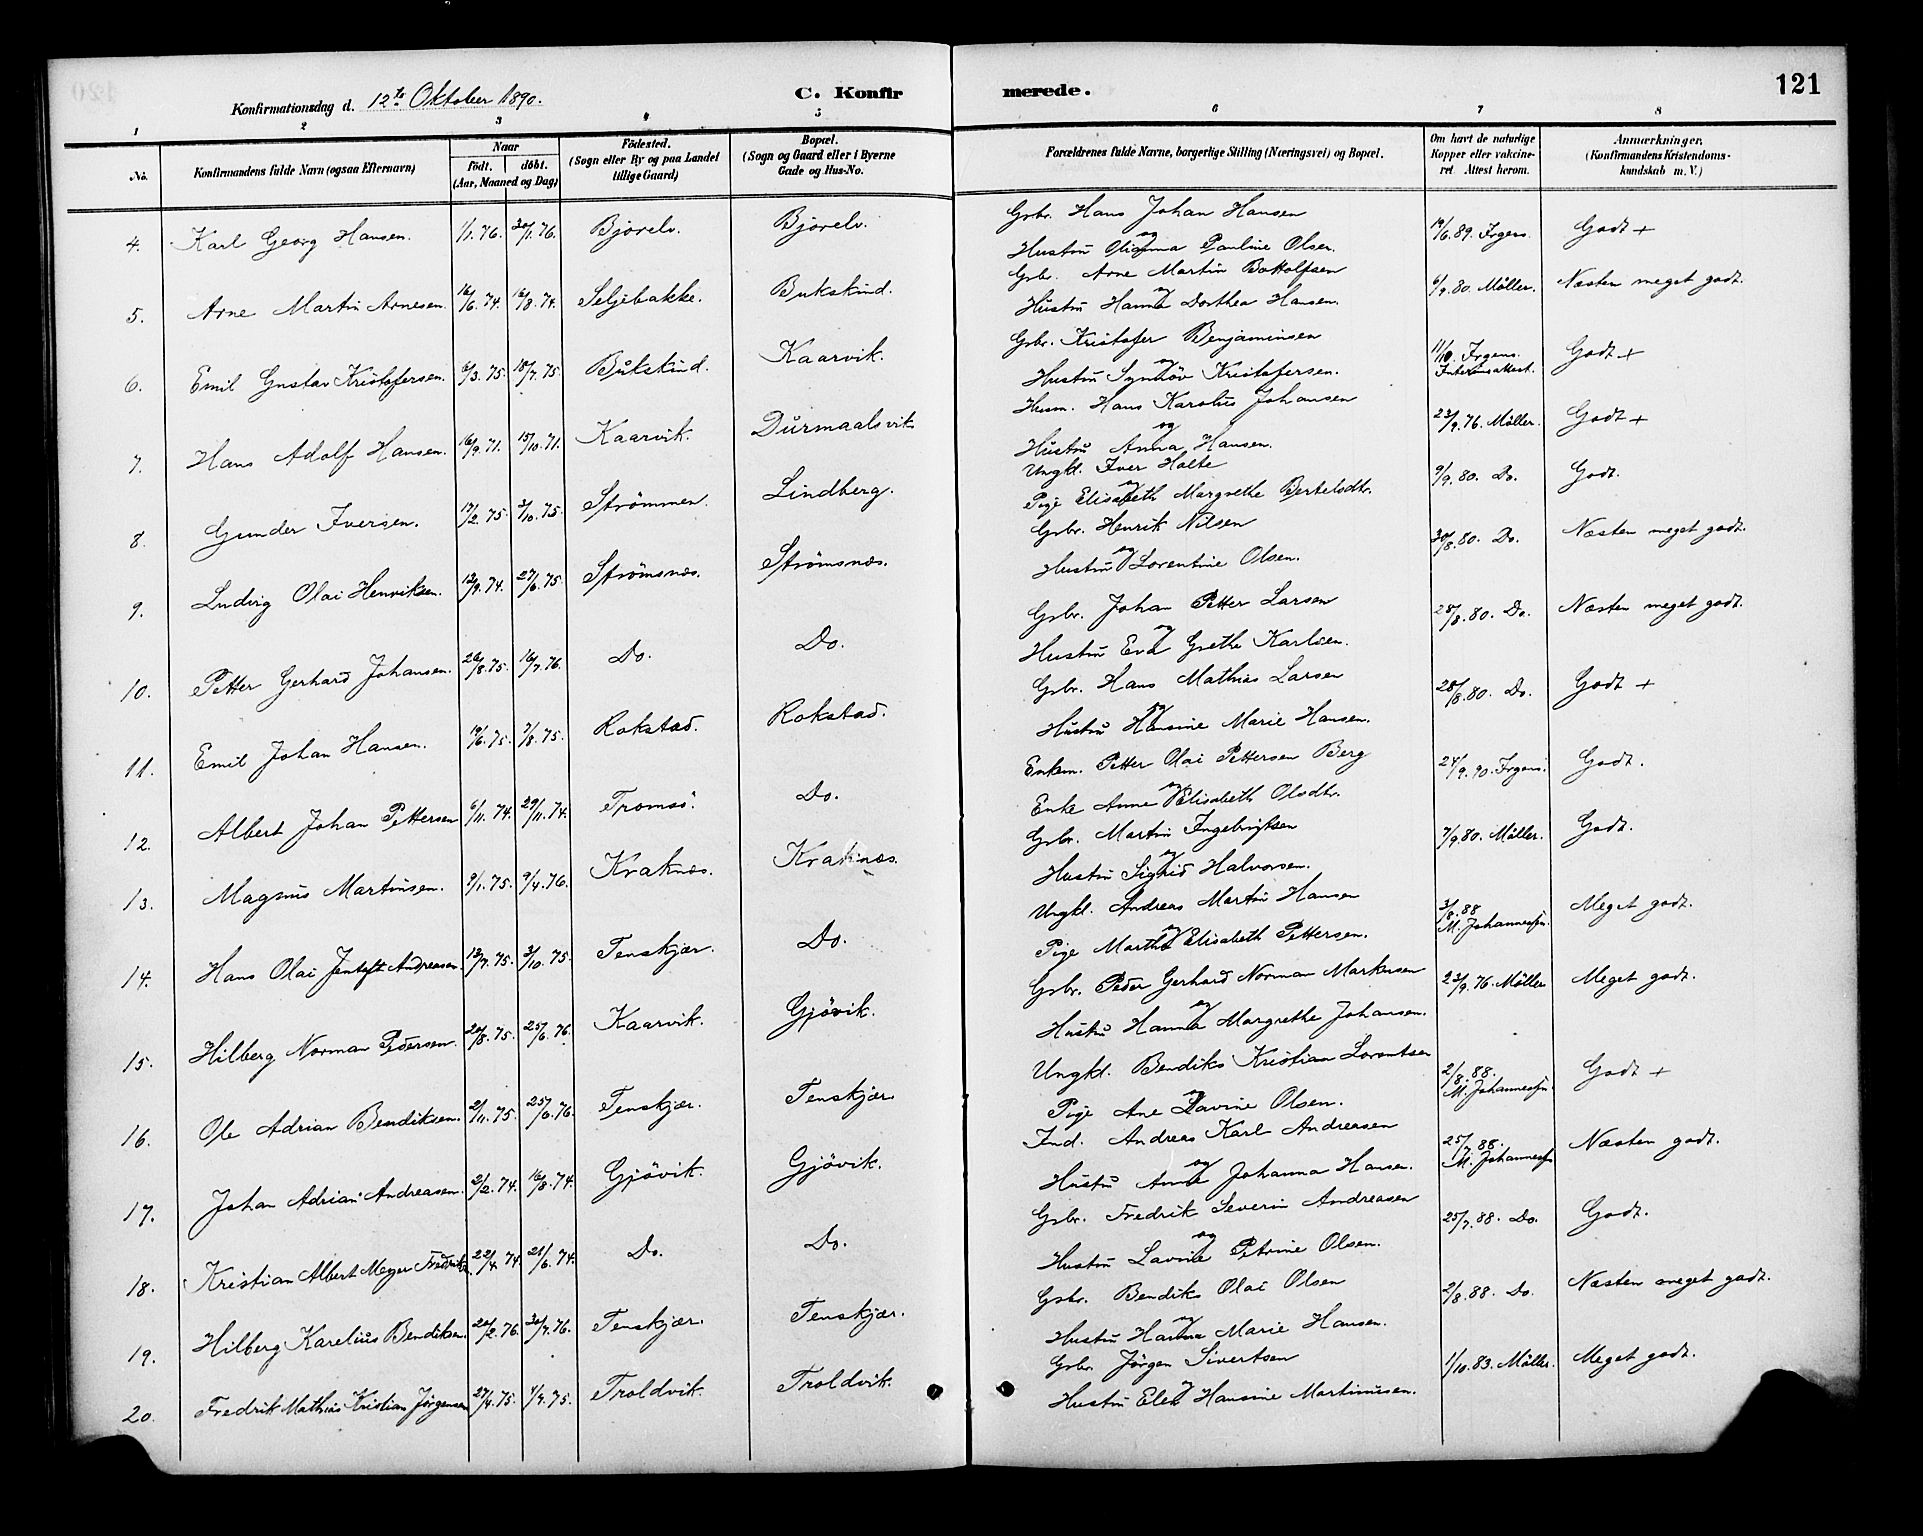 121
Konfirmationsdag d. 12te Oktober 1890.
C. Konfirmerede.
1 2 3 4 5 6 7 8
No. Konfirmandens fulde Navn (ogsaa Efternavn) Naar Födt. döbt. (Aar, Maaned og Dag) Födested. (Sogn eller By og paa Landet tillige Gaard) Bopæl. (Sogn og Gaard eller i Byerne Gade og Hus-No. Forældrenes fulde Navne, borgerlige Stilling (Næringsvei) og Bopæl. Om havt de naturlige Kopper eller vaccineret. Attest herom. Anmærkninger. (Konfirmandens Kristendomskundskab m. V.)
4. Karl Georg Hansen. 1/1.76. 30/1.76. Bjorelv. Bjorelv. Gbr. Hans Johan Hansen 19/6.89. Irgens. Godt +
og Hustru Olianna Pauline Olsen.
5. Arne Martin Arnesen. 16/6.74. 16/8.74. Seljebakke. Bukskind. Gbr. Arne Martin Bottolfsen 6/9.80. Möller. Næsten meget godt.
og Hustru Hanna Dorthea Hansen.
6. Emil Gustav Kristofersen. 6/3.75. 18/7.75. Bukskind. Kaarvik. Gbr. Kristofer Benjaminsen 11/10. Irgens. Interimsattest. Godt +
og Hustru Synnöv Kristofersen.
7. Hans Adolf Hansen. 16/9.71. 15/10.71. Kaarvik. Durmaalsvik Husm. Hans Karolus Johansen 23/9.76. Möller. Godt +
og Hustru Anna Hansen.
8. Gunder Iversen. 17/2.75. 3/10.75. Strömmen. Lindberg. Ungkl. Iver Holte 9/9.80. Do. Godt.
og Pige Elisabeth Margrethe Bertelsdtr.
9. Ludvig Olai Henriksen. 12/9.74. 27/6.75. Strömsnæs. Strömsnæs. Gbr. Henrik Nilsen 30/8.80. Do. Næsten meget godt.
og Hustru Lorentine Olsen.
10. Petter Gerhard Johansen. 26/8.75. 16/7.76. Do. Do. Gbr. Johan Petter Larsen 28/8.80. Do. Næsten meget godt.
og Hustru Eva Grethe Karlsen.
11. Emil Johan Hansen. 19/6.75. 7/8.75. Rokstad. Rokstad. Gbr. Hans Mathias Larsen 28/8.80. Do. Godt +
og Hustru Hansine Marie Hansen.
12. Albert Johan Pettersen 6/11.74. 29/11.74. Tromsö. Do. Enkem. Petter Olai Pettersen Berg 24/9.90. Irgens. Godt.
og Enke Anne Elisabeth Olsdtr.
13. Magnus Martinsen. 9/1.75. 9/4.76. Kraknæs. Kraknæs. Gbr. Martin Ingebrigtsen 7/9.80. Möller. Godt.
og Hustru Sigrid Halvorsen.
14. Hans Olai Jentoft Andreasen 13/7.75. 3/10.75. Tenskjær. Do. Ungkl. Andreas Martin Hansen 3/8.88 M. Johannessen. Meget godt.
og Pige Martha Elisabeth Pettersen.
15. Hilberg Norman Pedersen. 20/8.75. 25/6.76. Kaarvik. Gjövik. Gbr. Peder Gerhard Norman Markusen 23/9.76. Möller Meget godt.
og Hustru Hanna Margrethe Johansen.
16. Ole Adrian Bendiksen. 2/11.75. 25/6.76. Tenskjær. Tenskjær. Ungkl. Bendiks Kristian Lorentsen 2/8.88. M. Johannessen. Godt +
og Pige Ane Lavine Olsen.
17. Johan Adrian Andreasen. 2/2.74. 16/8.74. Gjövik. Gjövik. Ind. Andreas Karl Andreasen 25/7.88. M. Johannessen Næsten godt.
og Hustru Anne Johanna Hansen.
18. Kristian Albert Meyer 22/4.74. 21/6.74. Do. Do. Gbr. Fredrik Severin Andreasen 25/7.88. Do. Godt.
og Hustru Lavine Petrine Olsen.
19. Hilberg Karelius Bendiksen. 20/2.76. 30/7.76. Tenskjær. Tenskjær. Gbr. Bendiks Olai Olsen 2/8.88. Do. Næsten meget godt.
og Hustru Hanna Marie Hansen.
20. Fredrik Mathias Kristian Jörgensen 27/4.75. 1/7.75. Troldvik. Troldvik. Gbr. Jörgen Sivertsen 1/10.83. Möller. Meget godt.
og Hustru Elen Hansine Martinusen.